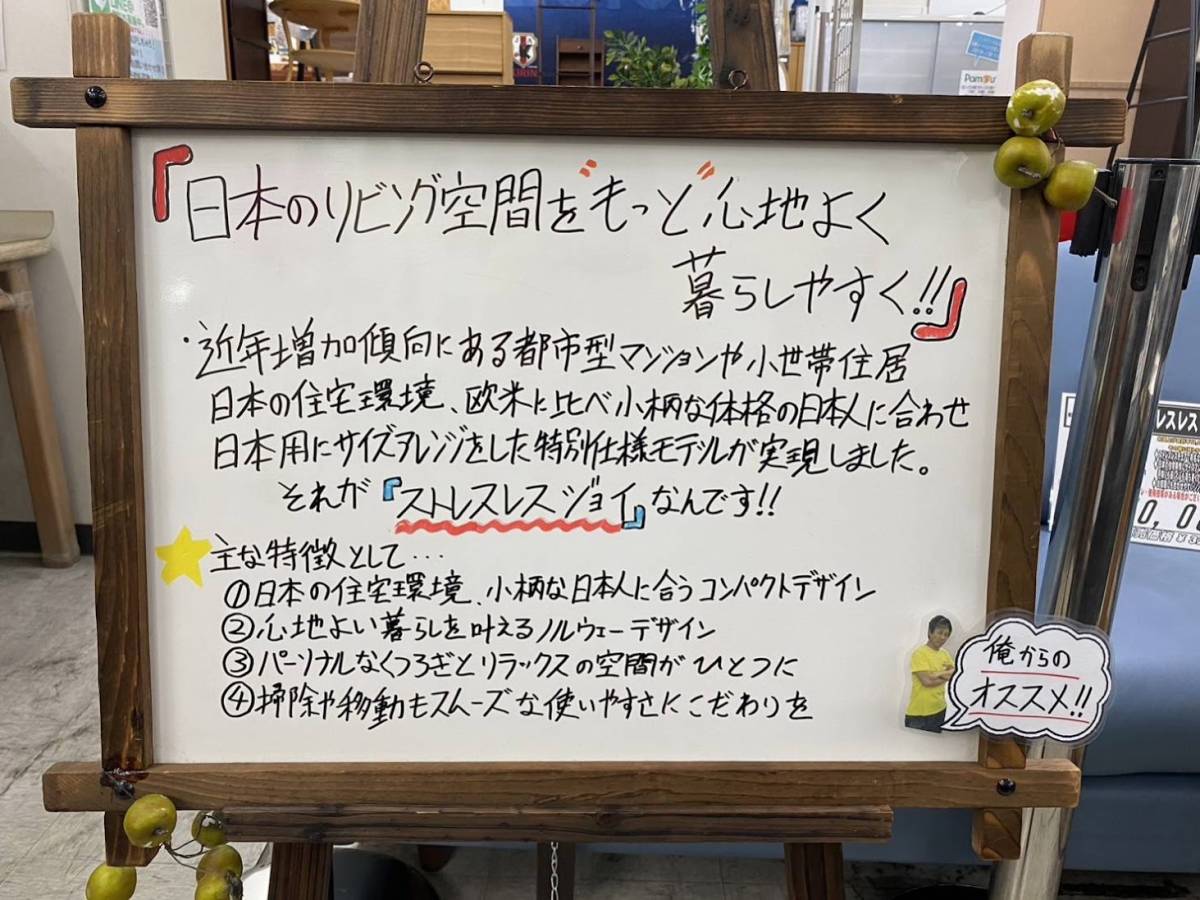 『日本のリビング空間を"もっと"心地よく
暮らしやすく!!』
・近年増加傾向にある都市型マンションや小世帯住居
日本の住宅環境、欧米に比べ小柄な体格の日本人に合わせ
日本用にサイズアレンジをした特別仕様モデルが実現しました。
それが『ストレスレスジョイ』なんです!!
主な特徴として…
①日本の住宅環境、小柄な日本人に合うコンパクトデザイン
②心地よい暮らしを叶えるノルウェーデザイン
③パーソナルなくつろぎとリラックスの空間がひとつに
④掃除や移動もスムーズな使いやすさにこだわりを
俺からの
オススメ!!
Pamouna
レスレス